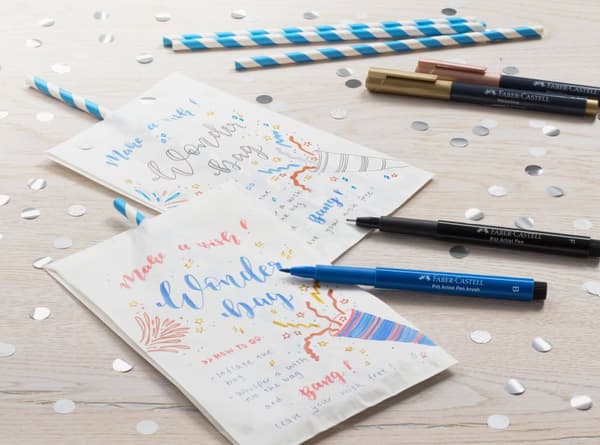 FABER-CASTELL
FABER-CASTELL
Make a wish!
Wonder
bag
Bang!
FABER-CASTELL
Pitt Artist Pen
F
FABER-CASTELL
Pitt Artist Pen brush
B
Make a wish!
Wonder
bag
HOW TO DO
- Inflate the
bag
- Whisper a wish
into the bag
and
Bang!
leave your wish free!